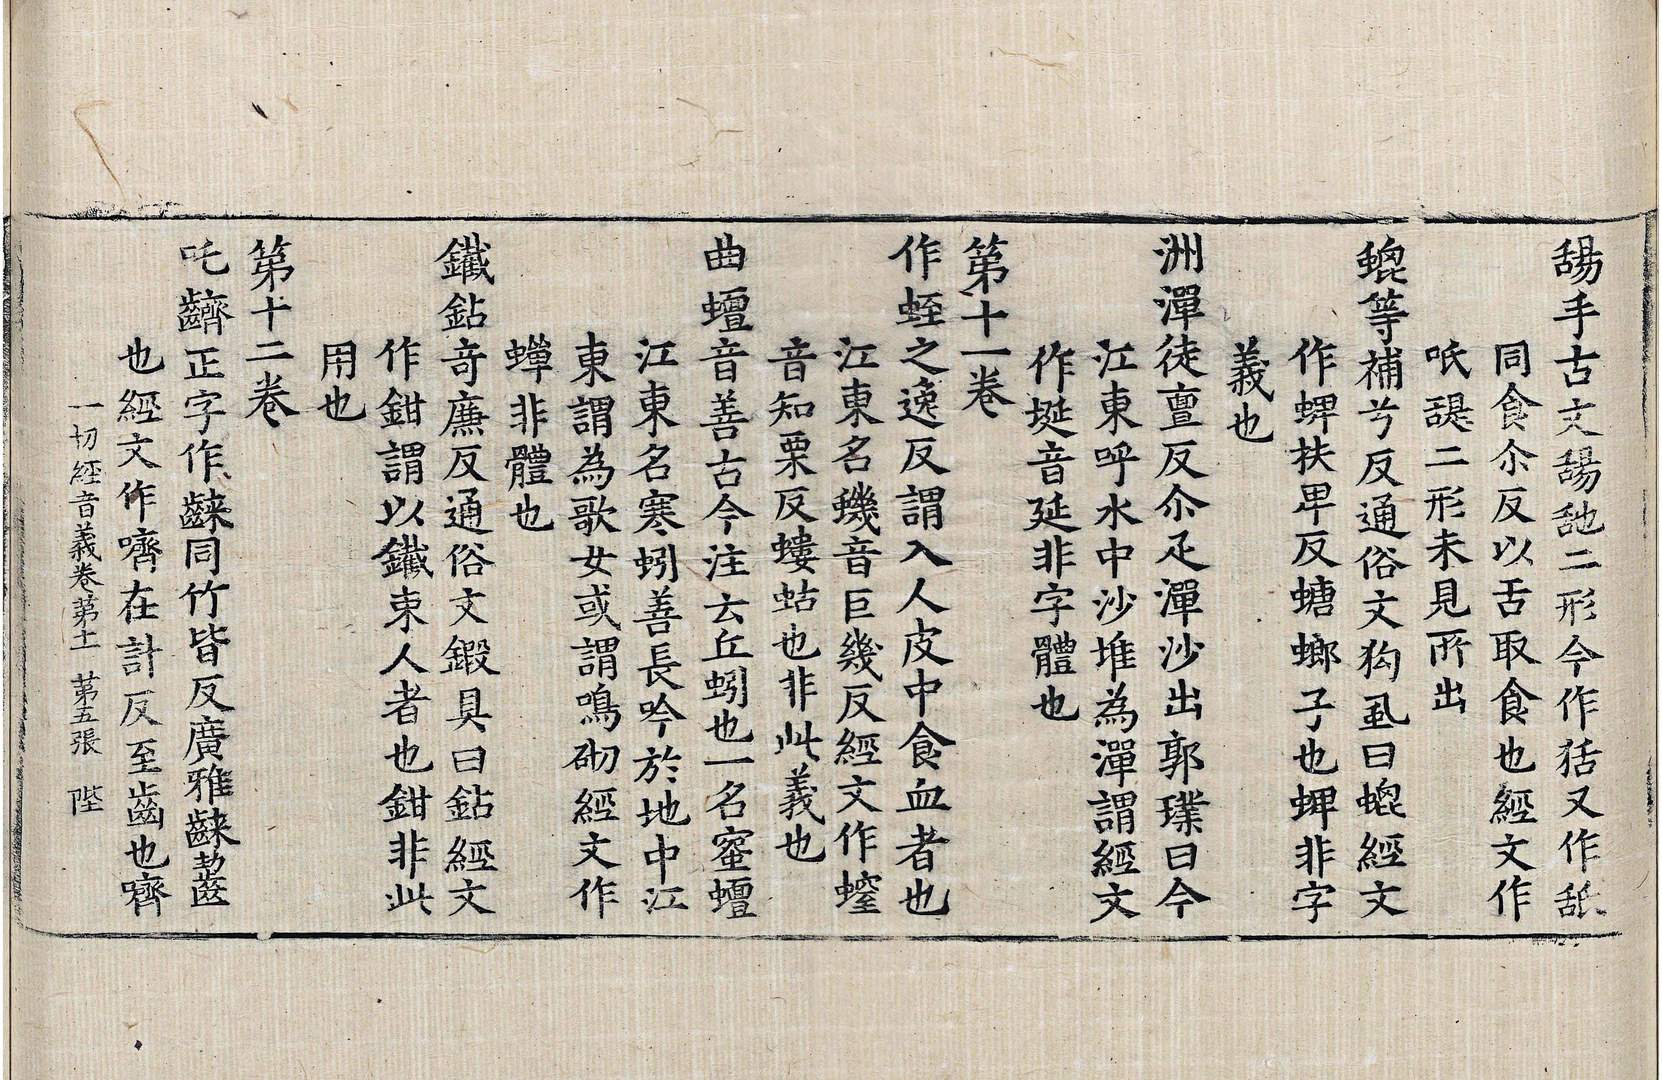 舓手古文舓䑛二形今作狧又作舐
同食尒反以舌取食也經文作
㕆䑛二形未見所出
螕等補兮反通俗文狗虱曰螕經文
作蜱扶卑反螗螂子也蜱非字
義也
洲潬徒亶反尒疋潬沙出郭璞曰今
江東呼水中沙堆為潬謂經文
作埏音延非字體也
第十一卷
作蛭之逸反謂入人皮中食血者也
江東名蟣音巨幾反經文作螲
音知栗反螻蛄也非此義也
曲蟺音善古今注云丘蚓也一名蜜蟺
江東名寒蚓善長吟於地中江
東謂為歌女或謂鳴砌經文作
蟬非體也
鐵鉆奇廉反通俗文鍛具曰鉆經文
作鉗謂以鐵束人者也鉗非此
用也
第十二卷
吒齌正字作齼同竹皆反廣雅齼齧
也經文作嚌在計反至齒也嚌
一切經音義卷第十一 第五張 陛